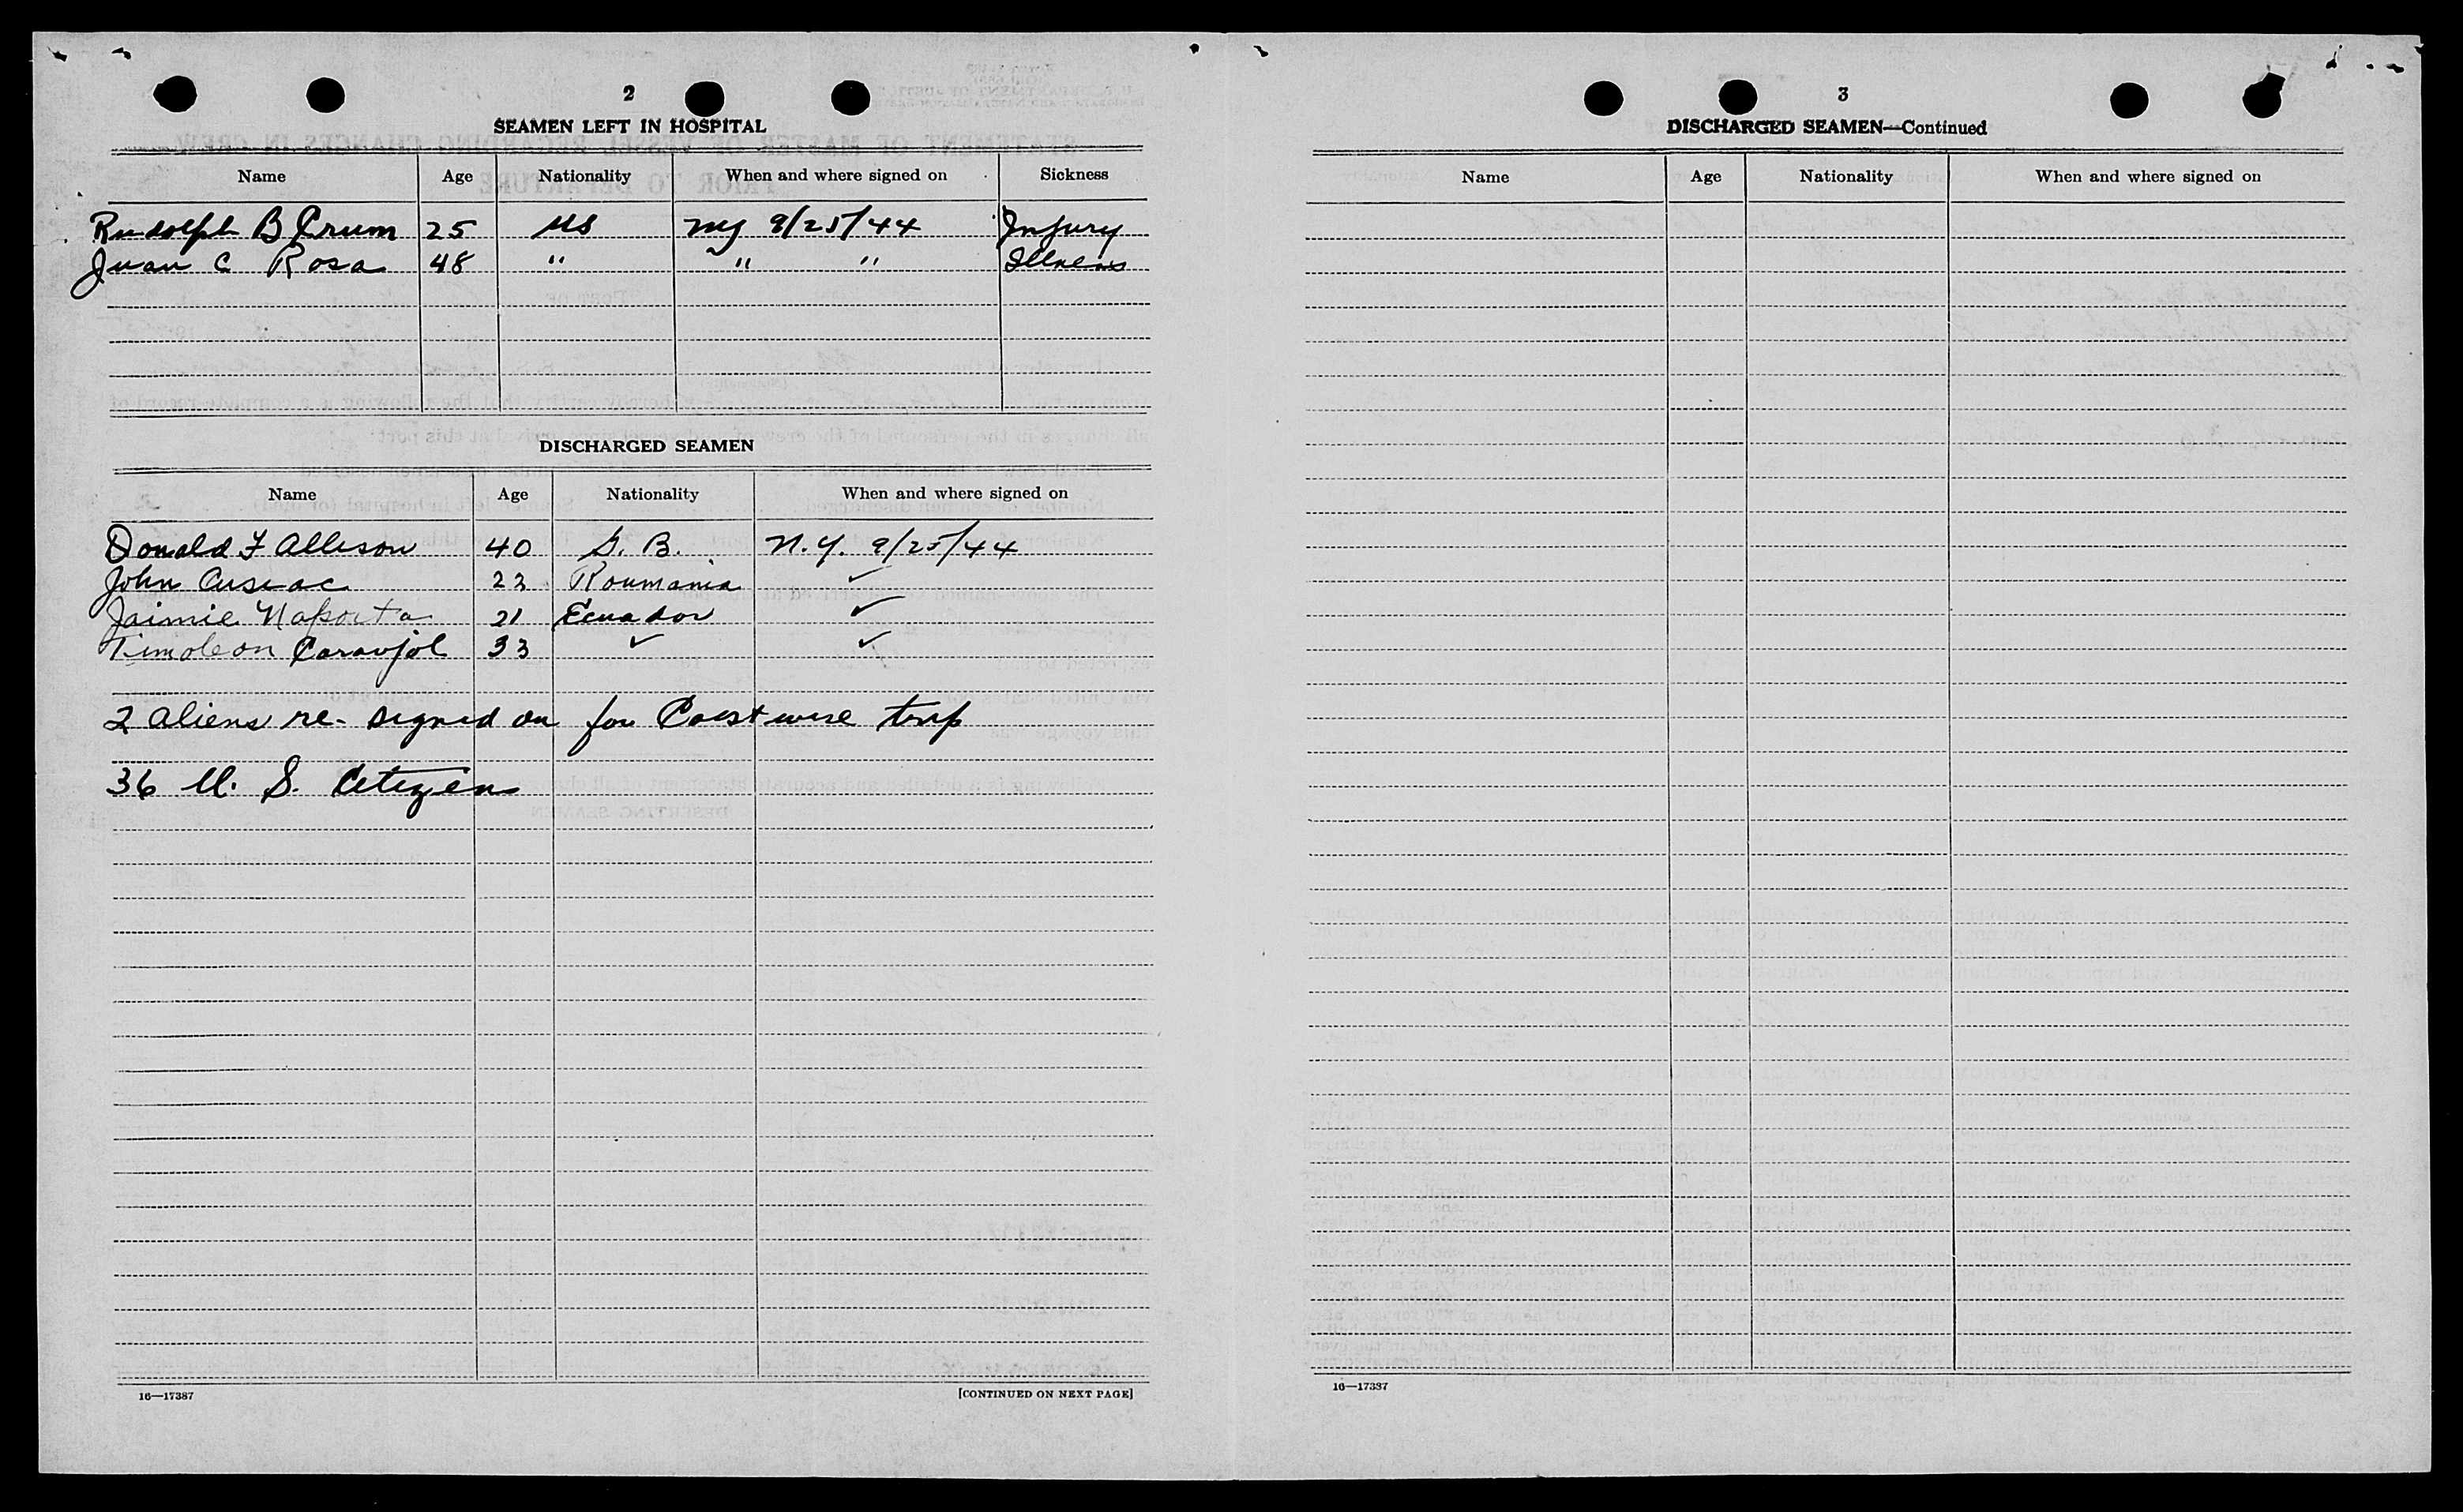 2
SEAMEN LEFT IN HOSPITAL
Name Age Nationality When and where signed on Sickness
Rudolph B Crum 25 US NY 9/25/44 Injury
Juan C Rosa 48 " " " Illness
DISCHARGED SEAMEN
Name Age Nationality When and where signed on
Donald F Allison 40 G. B. N.Y. 9/25/44
John Cusiac 22 Roumania ✓
Jaimie Naporta 21 Ecuador ✓
Timoleon Caravjol 33 ✓ ✓
2 aliens re-signed on for Coastwise trip
36 U. S. Citizens
16—17387 [CONTINUED ON NEXT PAGE]
3
DISCHARGED SEAMEN—Continued
Name Age Nationality When and where signed on
16—17387